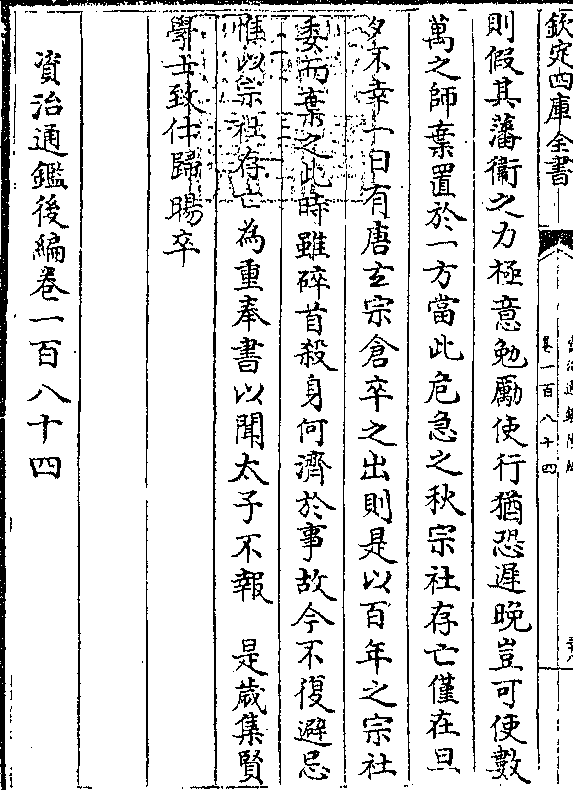 欽定四庫全書
卷一百八十四
則假其藩衞之力極意勉勵使行猶恐遲晚豈可使數
萬之師棄置於一方當此危急之秋宗社存亡僅在旦
夕不幸一日有唐玄宗倉卒之出則是以百年之宗社
委而棄之此時雖碎首殺身何濟於事故今不復避忌
惟以宗社存亡為重奉書以聞太子不報　是歲集賢
學士致仕歸暘卒
資治通鑑後編卷一百八十四